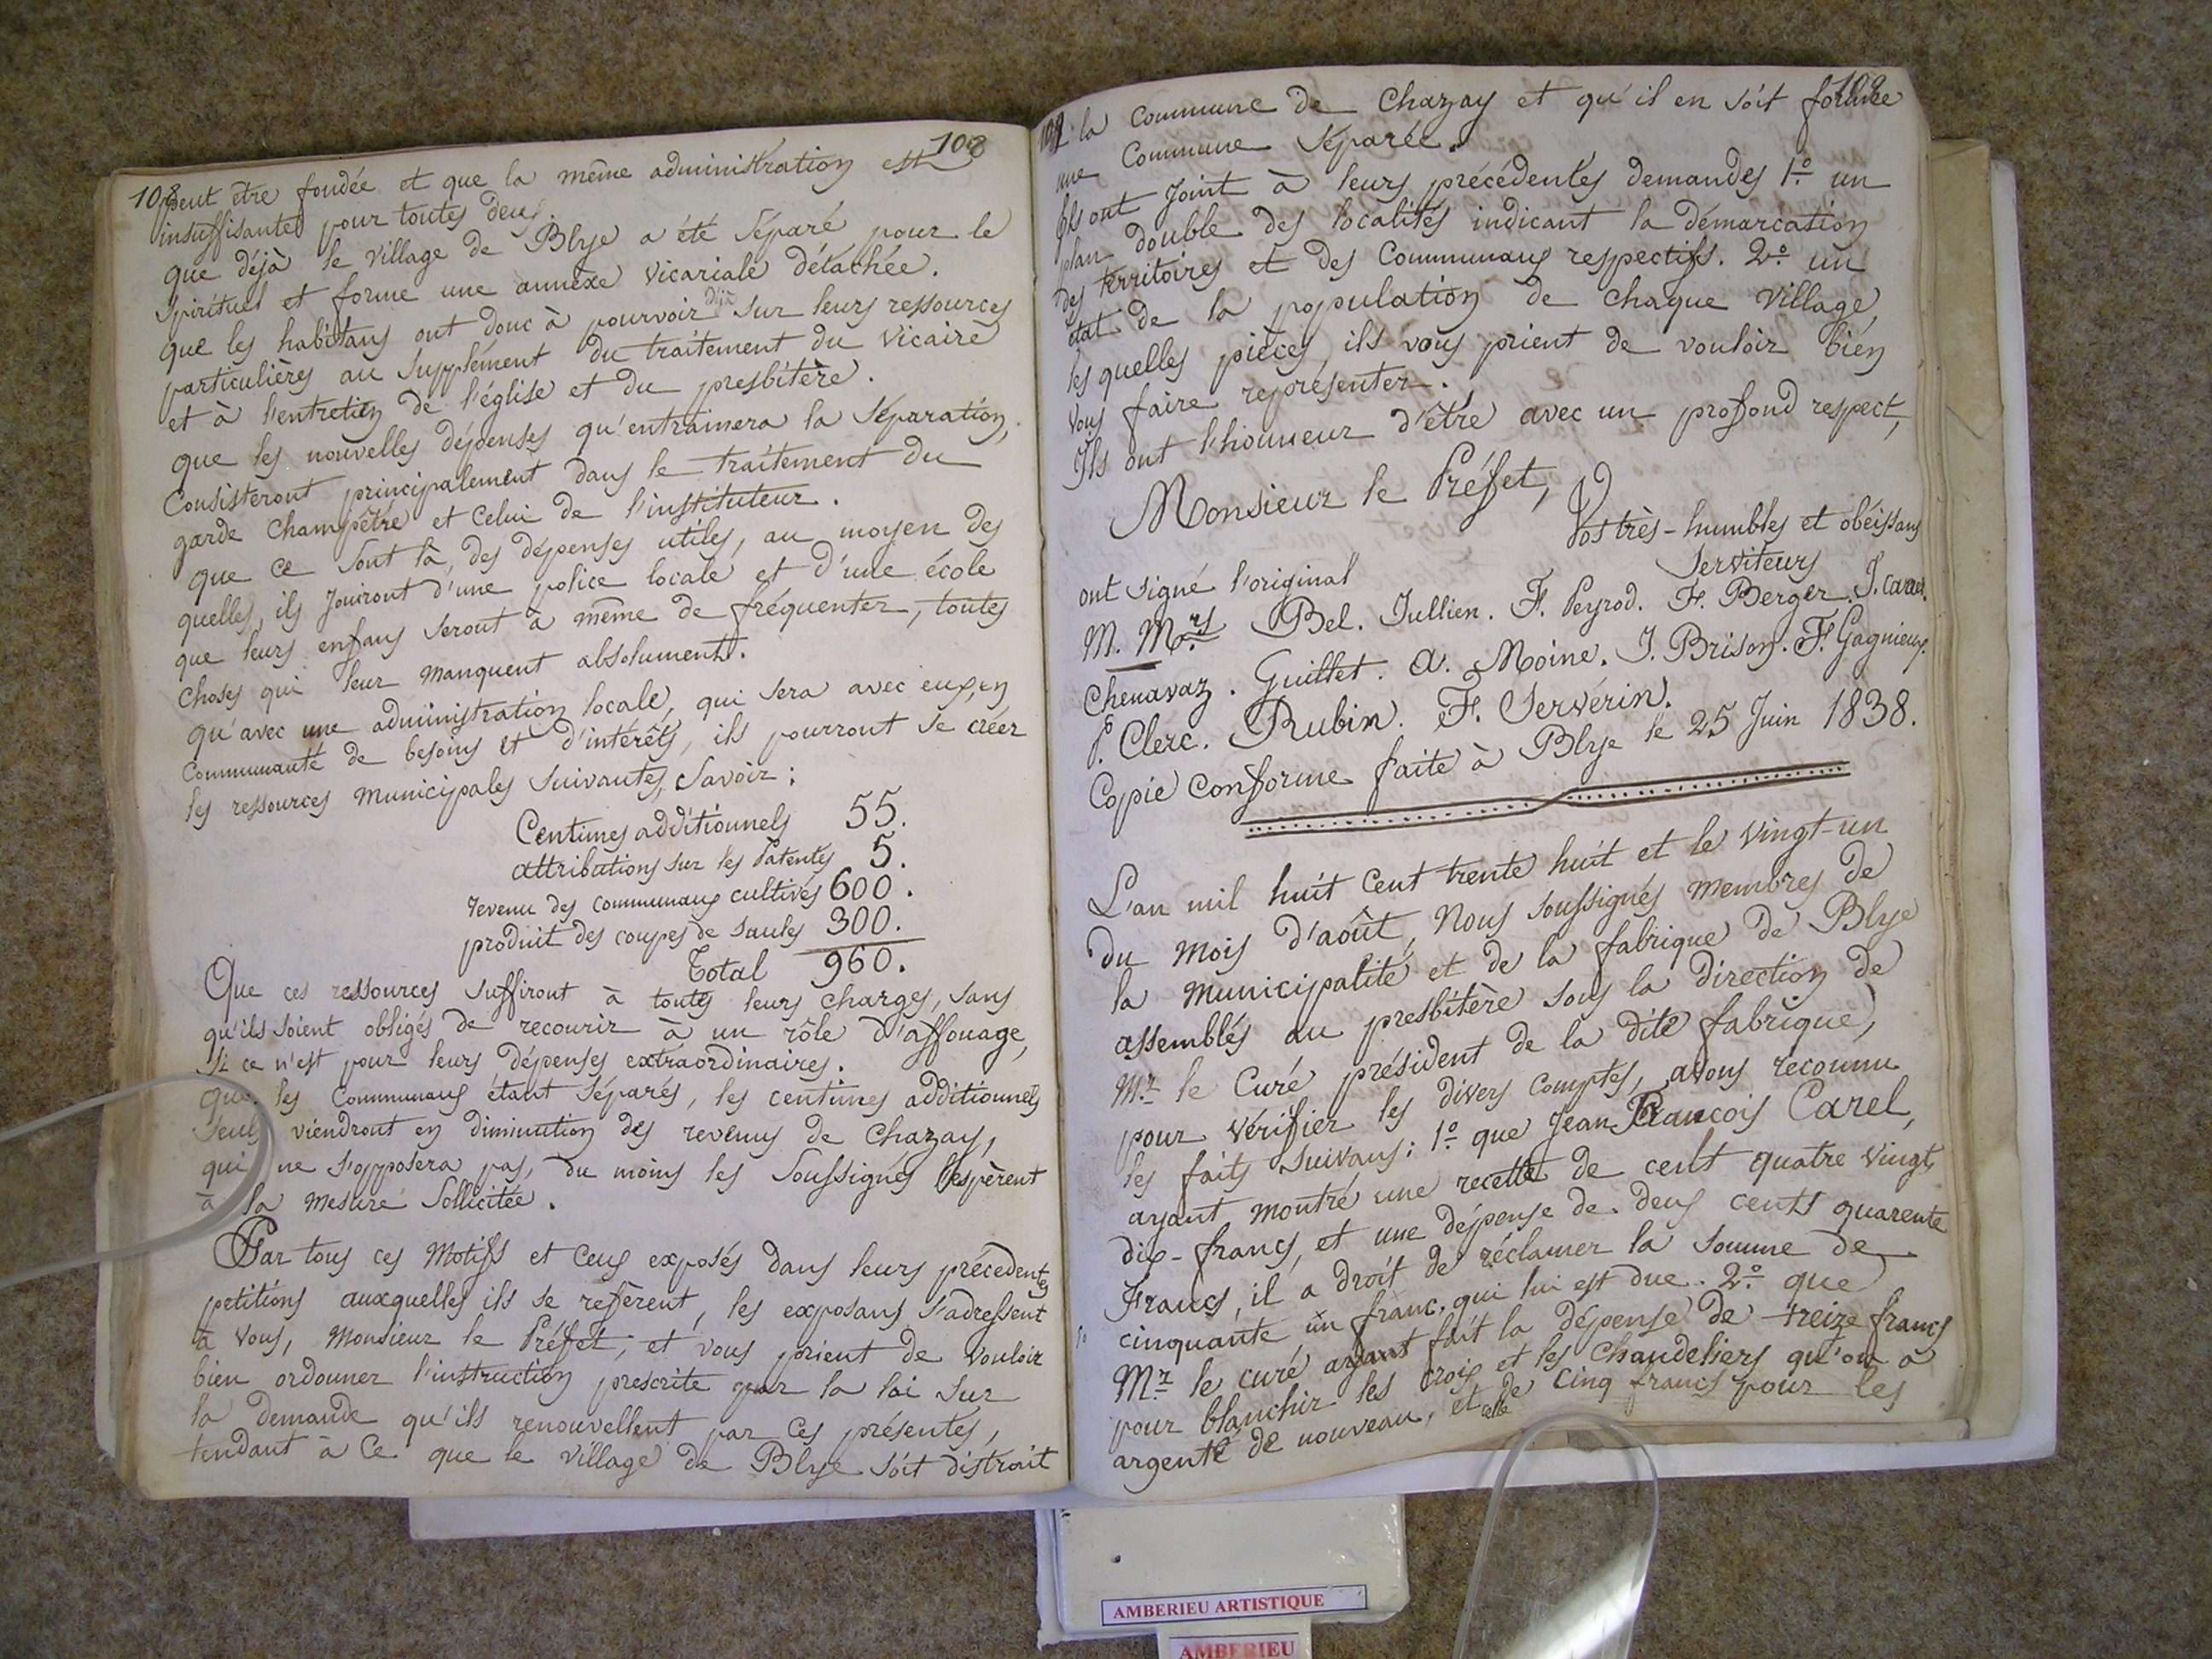 108 108
peut être fondée et que la même administration est
insuffisante pour toutes deux.
que déjà le village de Blye a été séparé pour le
spirituel et forme une annèxe vicariale détachée.
que les habitans ont donc à pourvoir déjà sur leurs ressources
particulières au supplément du traitement du vicaire
et à l'entretien de l'église et du presbitère.
que les nouvelles dépenses qu'entrainera la séparation,
consisteront principalement dans le traitement du
garde champêtre et celui de l'instituteur.
que ce sont là, des dépenses utiles, au moyen des
quelles, ils jouiront d'une police locale et d'une école
que leurs enfans seront à même de fréquenter, toutes
choses qui leur manquent absolument.
qu'avec une administration locale, qui sera avec eux, en
communauté de besoins et d'intérêts, ils pourront se créer
les ressources municipales suivantes, savoir:
Centimes additionnels 55.
attributions sur les Patentes 5.
revenu des communaux cultivés 600.
produit des coupes de saules 300.
Total 960.
Que ces ressources suffiront à toutes leurs charges, sans
qu'ils soient obligés de recourir à un rôle d'affouage,
si ce n'est pour leurs dépenses extraordinaires.
que les communaux étant séparés, les centimes additionnels
seuls viendront en diminution des revenus de Chazay,
qui ne s'opposera pas, du moins les soussignés l'espèrent
à la mesure sollicitée.
Par tous ces motifs et ceux exposés dans leurs précédentes
petitions auxquelles ils se refèrent, les exposans s'adressent
à vous, Monsieur le Préfet, et vous prient de vouloir
bien ordonner l'instruction prescrite par la loi sur
la demande qu'ils renouvellent par ces présentes,
tendant à ce que le village de Blye soit distrait
109 109
de la commune de Chazay et qu'il en soit formée
une commune séparée.
Ils ont joint à leurs précédentes demandes 1.° un
plan double des localités indicant la démarcation
des territoires et des communaux respectifs. 2.° un
état de la population de chaque village,
les quelles pièces, ils vous prient de vouloir bien
vous faire représenter.
Ils ont l'honneur d'être avec un profond respect,
Monsieur le Préfet,
Vos très-humbles et obéissans
Serviteurs
ont signé l'original
M. Mrs Bel. Jullien. F. Peyrod. F. Berger. J. Carrer.
Chenavaz. Guillet. A. Moine. J. Brison. F. Gagnieux.
P. Clerc. Rubin. F. Servérin.
Copie conforme faite à Blye le 25 Juin 1838.
L'an mil huit cent trente huit et le vingt-un
du mois d'août, Nous soussignés membres de
la municipalité et de la fabrique de Blye
assemblés au presbitère sous la direction de
Mr. le Curé président de la dite fabrique,
pour vérifier les divers comptes, avons reconnu
les faits suivans: 1.° que Jean François Carel,
ayant montré une recette de cent quatre vingt
dix-francs, et une dépense de deux cents quarente
Francs, il a droit de réclamer la somme de
cinquante un franc, qui lui est due. 2.° que
Mr. le curé ayant fait la dépense de treize francs
pour blanchir les croix et les chandeliers qu'on a
argenté de nouveau, et celle de cinq francs pour les
AMBERIEU ARTISTIQUE
AMBERIEU